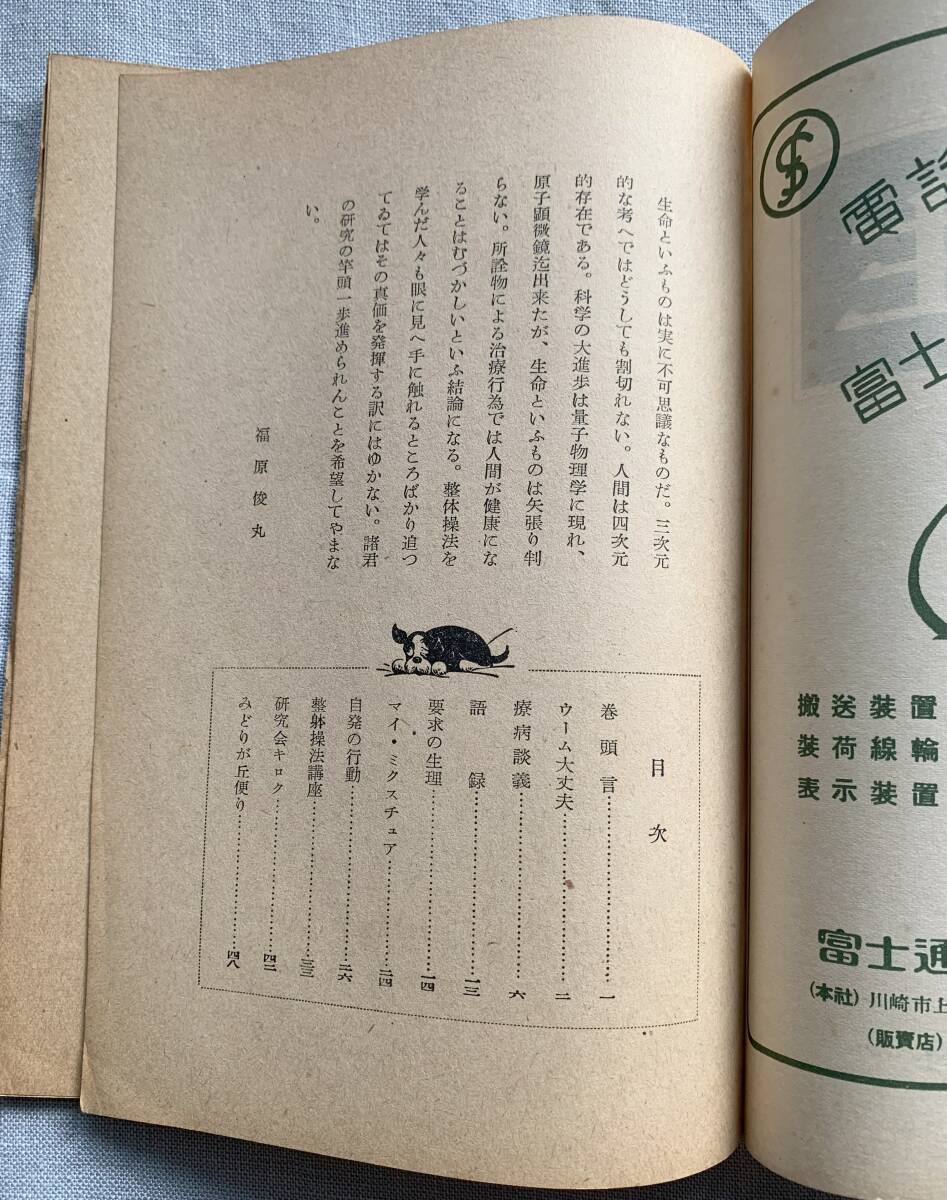 生命といふものは実に不可思議なものだ。三次元
的な考へではどうしても割切れない。人間は四次元
的存在である。科学の大進歩は量子物理学に現れ、
原子顕微鏡迄出来たが、生命といふものは矢張り判
らない。所詮物による治療行為では人間が健康にな
ることはむづかしいといふ結論になる。整体操法を
学んだ人々も眼に見へ手に触れるところばかり追つ
てゐてはその真価を発揮する訳にはゆかない。諸君
の研究の竿頭一歩進められんことを希望してやまな
い。
福原俊丸
目次
巻頭言…………一
ウーム大丈夫…………二
療病談義…………六
語録…………一三
要求の生理…………一四
マイ・ミクスチュア…………二四
自発の行動…………二六
整躰操法講座…………三三
研究会キロク…………四二
みどりが丘便り…………四八
電話
富士
搬送装置
装荷線輪
表示装置
富士通
(本社)川崎市上
(販賣店)